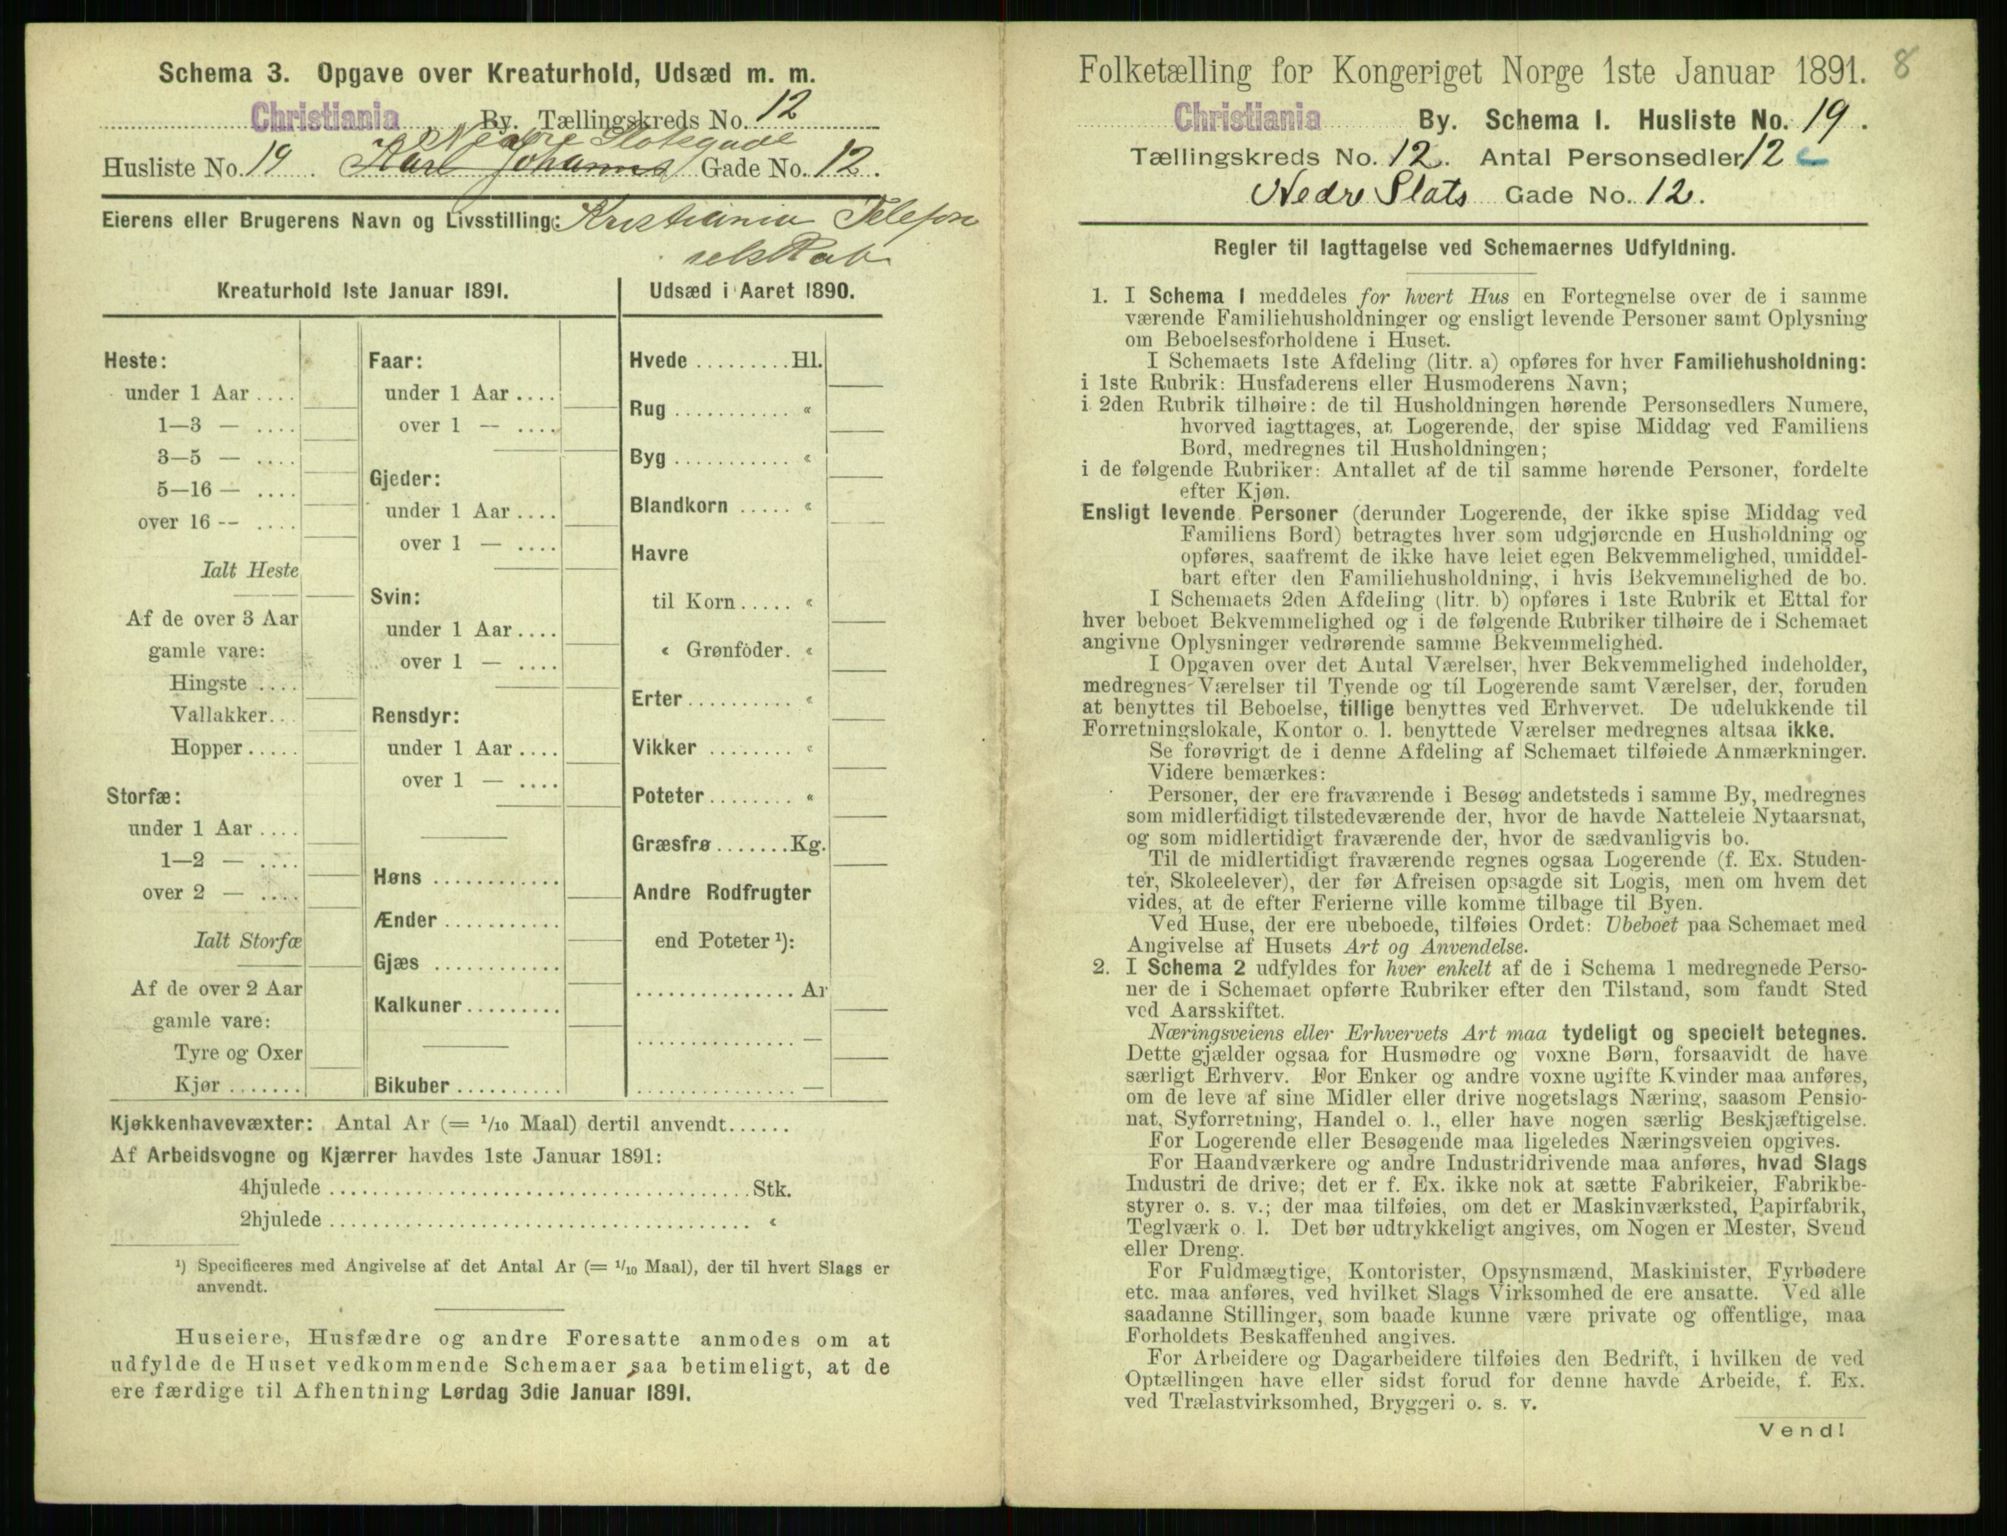 Schema 3. Opgave over Kreaturhold, Udsæd m. m.
Christiania By. Tællingskreds No. 12
Nedre Slotsgade
Husliste No. 19. Karl Johanns Gade No. 12.
Eierens eller Brugerens Navn og Livsstilling: Kristiania Telefon
selskab
Kreaturhold 1ste Januar 1891.
Heste:
under 1 Aar ....
1—3 — ....
3—5 — ....
5—16 — ....
over 16 -- ....
Ialt Heste
Af de over 3 Aar
gamle vare:
Hingste ....
Vallakker...
Hopper .....
Storfæ:
under 1 Aar ....
1—2 — ....
over 2 — ....
Ialt Storfæ
Af de over 2 Aar
gamle vare:
Tyre og Oxer
Kjør .......
Faar:
under 1 Aar ....
over 1 — ....
Gjeder:
under 1 Aar ....
over 1 — ....
Svin:
under 1 Aar ....
over 1 — ....
Rensdyr:
under 1 Aar ....
over 1 — ....
Høns ............
Ænder ...........
Gjæs ............
Kalkuner.........
Bikuber ..........
Udsæd i Aaret 1890.
Hvede .........Hl.
Rug ........... «
Byg ........... «
Blandkorn ..... «
Havre
til Korn ..... «
« Grønfoder. «
Erter .......... «
Vikker ........ «
Poteter ........ «
Græsfrø .......Kg.
Andre Rodfrugter
end Poteter ¹):
............... Ar
............... —
............... —
Kjøkkenhavevæxter: Antal Ar (= 1/10 Maal) dertil anvendt......
Af Arbeidsvogne og Kjærrer havdes 1ste Januar 1891:
4hjulede ........................................Stk.
2hjulede ........................................ «
¹) Specificeres med Angivelse af det Antal Ar (= 1/10 Maal), der til hvert Slags er
anvendt.
Huseiere, Husfædre og andre Foresatte anmodes om at
udfylde de Huset vedkommende Schemaer saa betimeligt, at de
ere færdige til Afhentning Lørdag 3die Januar 1891.
Folketælling for Kongeriget Norge 1ste Januar 1891. 8
Christiania By. Schema I. Husliste No. 19.
Tællingskreds No. 12. Antal Personsedler 12
Nedre Slots Gade No. 12.
Regler til Iagttagelse ved Schemaernes Udfyldning.
1. I Schema 1 meddeles for hvert Hus en Fortegnelse over de i samme
værende Familiehusholdninger og ensligt levende Personer samt Oplysning
om Beboelsesforholdene i Huset.
I Schemaets 1ste Afdeling (litr. a) opføres for hver Familiehusholdning:
i 1ste Rubrik: Husfaderens eller Husmoderens Navn;
i 2den Rubrik tilhøire: de til Husholdningen hørende Personsedlers Numere,
hvorved iagttages, at Logerende, der spise Middag ved Familiens
Bord, medregnes til Husholdningen;
i de følgende Rubriker: Antallet af de til samme hørende Personer, fordelte
efter Kjøn.
Ensligt levende Personer (derunder Logerende, der ikke spise Middag ved
Familiens Bord) betragtes hver som udgjørende en Husholdning og
opføres, saafremt de ikke have leiet egen Bekvemmelighed, umiddel-
bart efter den Familiehusholdning, i hvis Bekvemmelighed de bo.
I Schemaets 2den Afdeling (litr. b) opføres i 1ste Rubrik et Ettal for
hver beboet Bekvemmelighed og i de følgende Rubriker tilhøire de i Schemaet
angivne Oplysninger vedrørende samme Bekvemmelighed.
I Opgaven over det Antal Værelser, hver Bekvemmelighed indeholder,
medregnes Værelser til Tyende og til Logerende samt Værelser, der, foruden
at benyttes til Beboelse, tillige benyttes ved Erhvervet. De udelukkende til
Forretningslokale, Kontor o. l. benyttede Værelser medregnes altsaa ikke.
Se forøvrigt de i denne Afdeling af Schemaet tilføiede Anmærkninger.
Videre bemærkes:
Personer, der ere fraværende i Besøg andetsteds i samme By, medregnes
som midlertidigt tilstedeværende der, hvor de havde Natteleie Nytaarsnat,
og som midlertidigt fraværende der, hvor de sædvanligvis bo.
Til de midlertidigt fraværende regnes ogsaa Logerende (f. Ex. Studen-
ter, Skoleelever), der før Afreisen opsagde sit Logis, men om hvem det
vides, at de efter Ferierne ville komme tilbage til Byen.
Ved Huse, der ere ubeboede, tilføies Ordet: Ubeboet paa Schemaet med
Angivelse af Husets Art og Anvendelse.
2. I Schema 2 udfyldes for hver enkelt af de i Schema 1 medregnede Perso-
ner de i Schemaet opførte Rubriker efter den Tilstand, som fandt Sted
ved Aarsskiftet.
Næringsveiens eller Erhvervets Art maa tydeligt og specielt betegnes.
Dette gjælder ogsaa for Husmødre og voxne Børn, forsaavidt de have
særligt Erhverv. For Enker og andre voxne ugifte Kvinder maa anføres,
om de leve af sine Midler eller drive nogetslags Næring, saasom Pensio-
nat, Syforretning, Handel o. l., eller have nogen særlig Beskjæftigelse.
For Logerende eller Besøgende maa ligeledes Næringsveien opgives.
For Haandværkere og andre Industridrivende maa anføres, hvad Slags
Industri de drive; det er f. Ex. ikke nok at sætte Fabrikeier, Fabrikbe-
styrer o. s. v.; der maa tilføies, om det er Maskinværksted, Papirfabrik,
Teglværk o. l. Det bør udtrykkeligt angives, om Nogen er Mester, Svend
eller Dreng.
For Fuldmægtige, Kontorister, Opsynsmænd, Maskinister, Fyrbødere
etc. maa anføres, ved hvilket Slags Virksomhed de ere ansatte. Ved alle
saadanne Stillinger, som baade kunne være private og offentlige, maa
Forholdets Beskaffenhed angives.
For Arbeidere og Dagarbeidere tilføies den Bedrift, i hvilken de ved
Optællingen have eller sidst forud for denne havde Arbeide, f. Ex.
ved Trælastvirksomhed, Bryggeri o. s. v.
Vend!